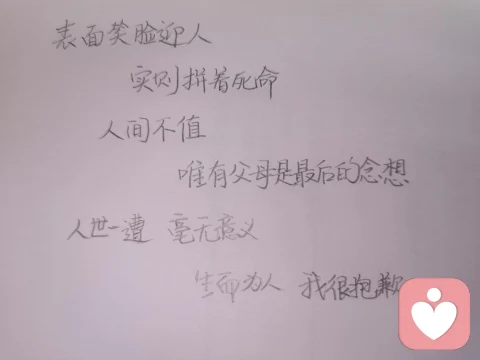 表面笑脸迎人
实则拼着死命
人间不值
唯有父母是最后的念想
人世一遭 毫无意义
生而为人 我很抱歉